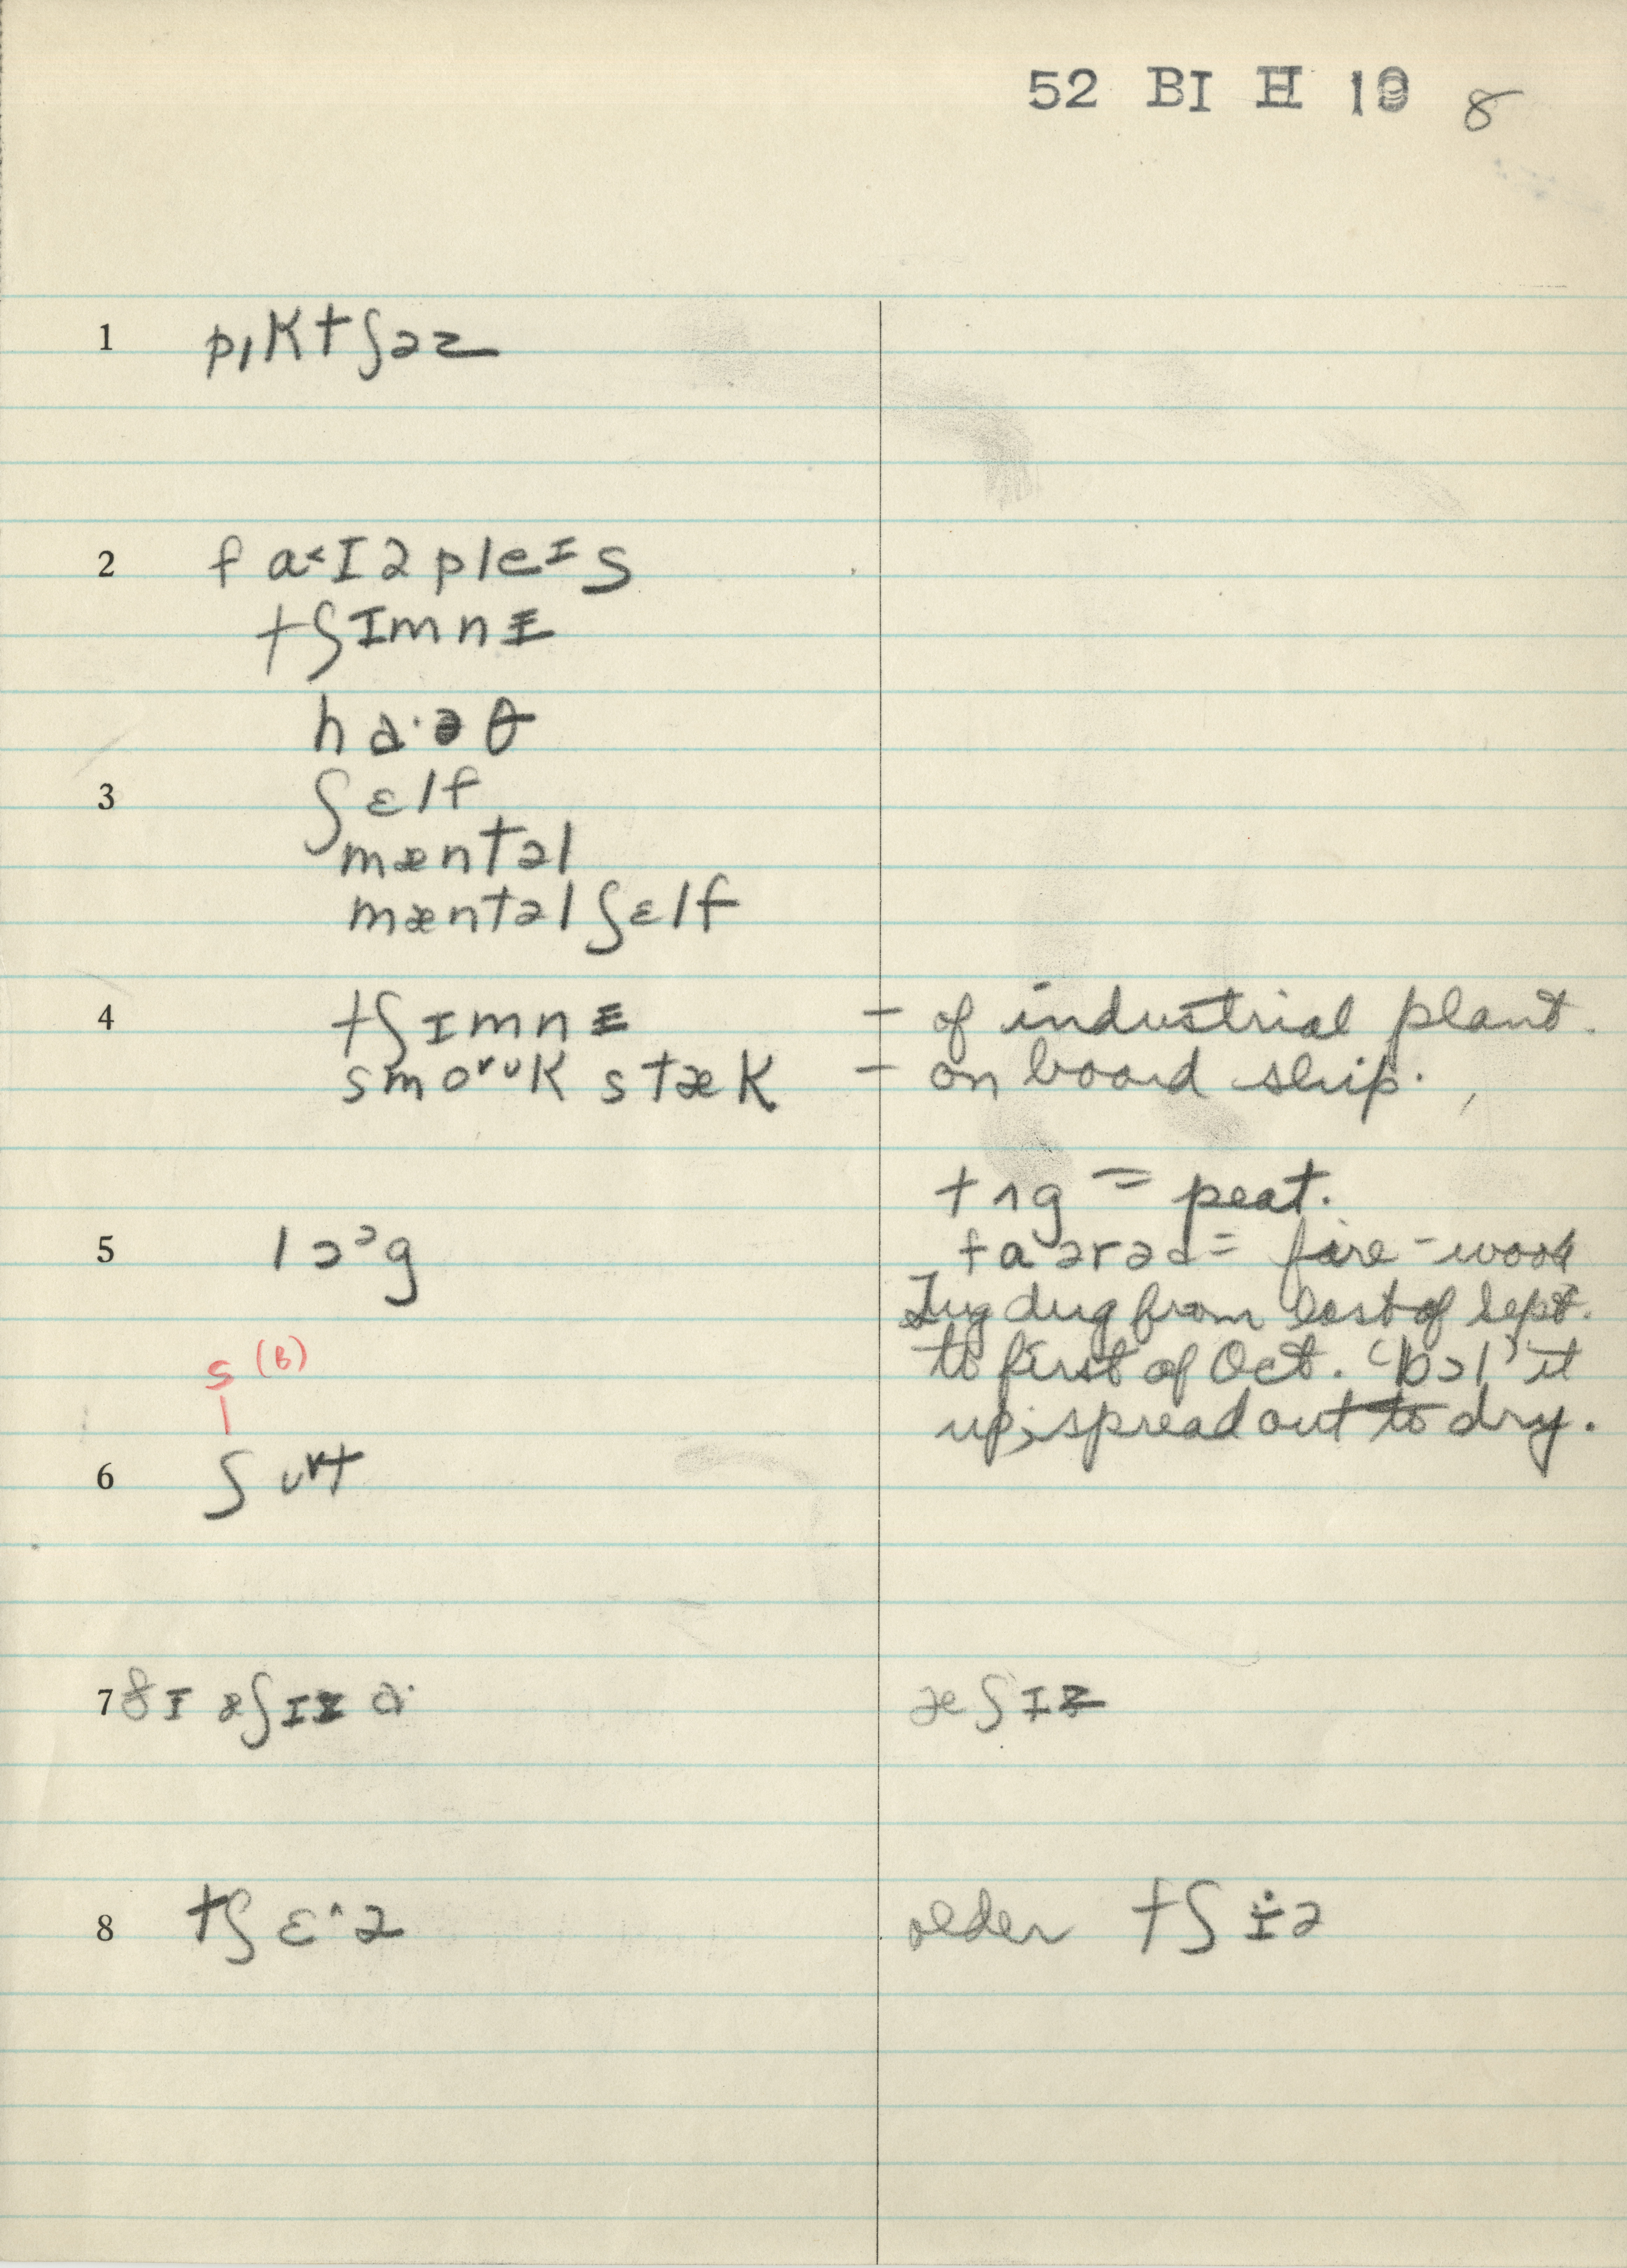 52 BI H 19 8
1 pɪktʃəz
2 fa˂ɪəpleɪs
tʃɪmnɪ
ha·əθ
3 ʃɛlf
mæntəl
mæntəl ʃɛlf
4 tʃɪmnɪ – of industrial plant.
smoʊk stæk – on board ship.
tʌg = peat.
5 lɔᵓg
= fire-wood
Tug dug from last of Sept.
to first of Oct. ‘bɔl’ it
up; spread out to dry.
s (B)
6 ʃʊt
7 ðɪ æʃɪz ɑ· æʃɪz
8 tʃɛ^ə older tʃɪə